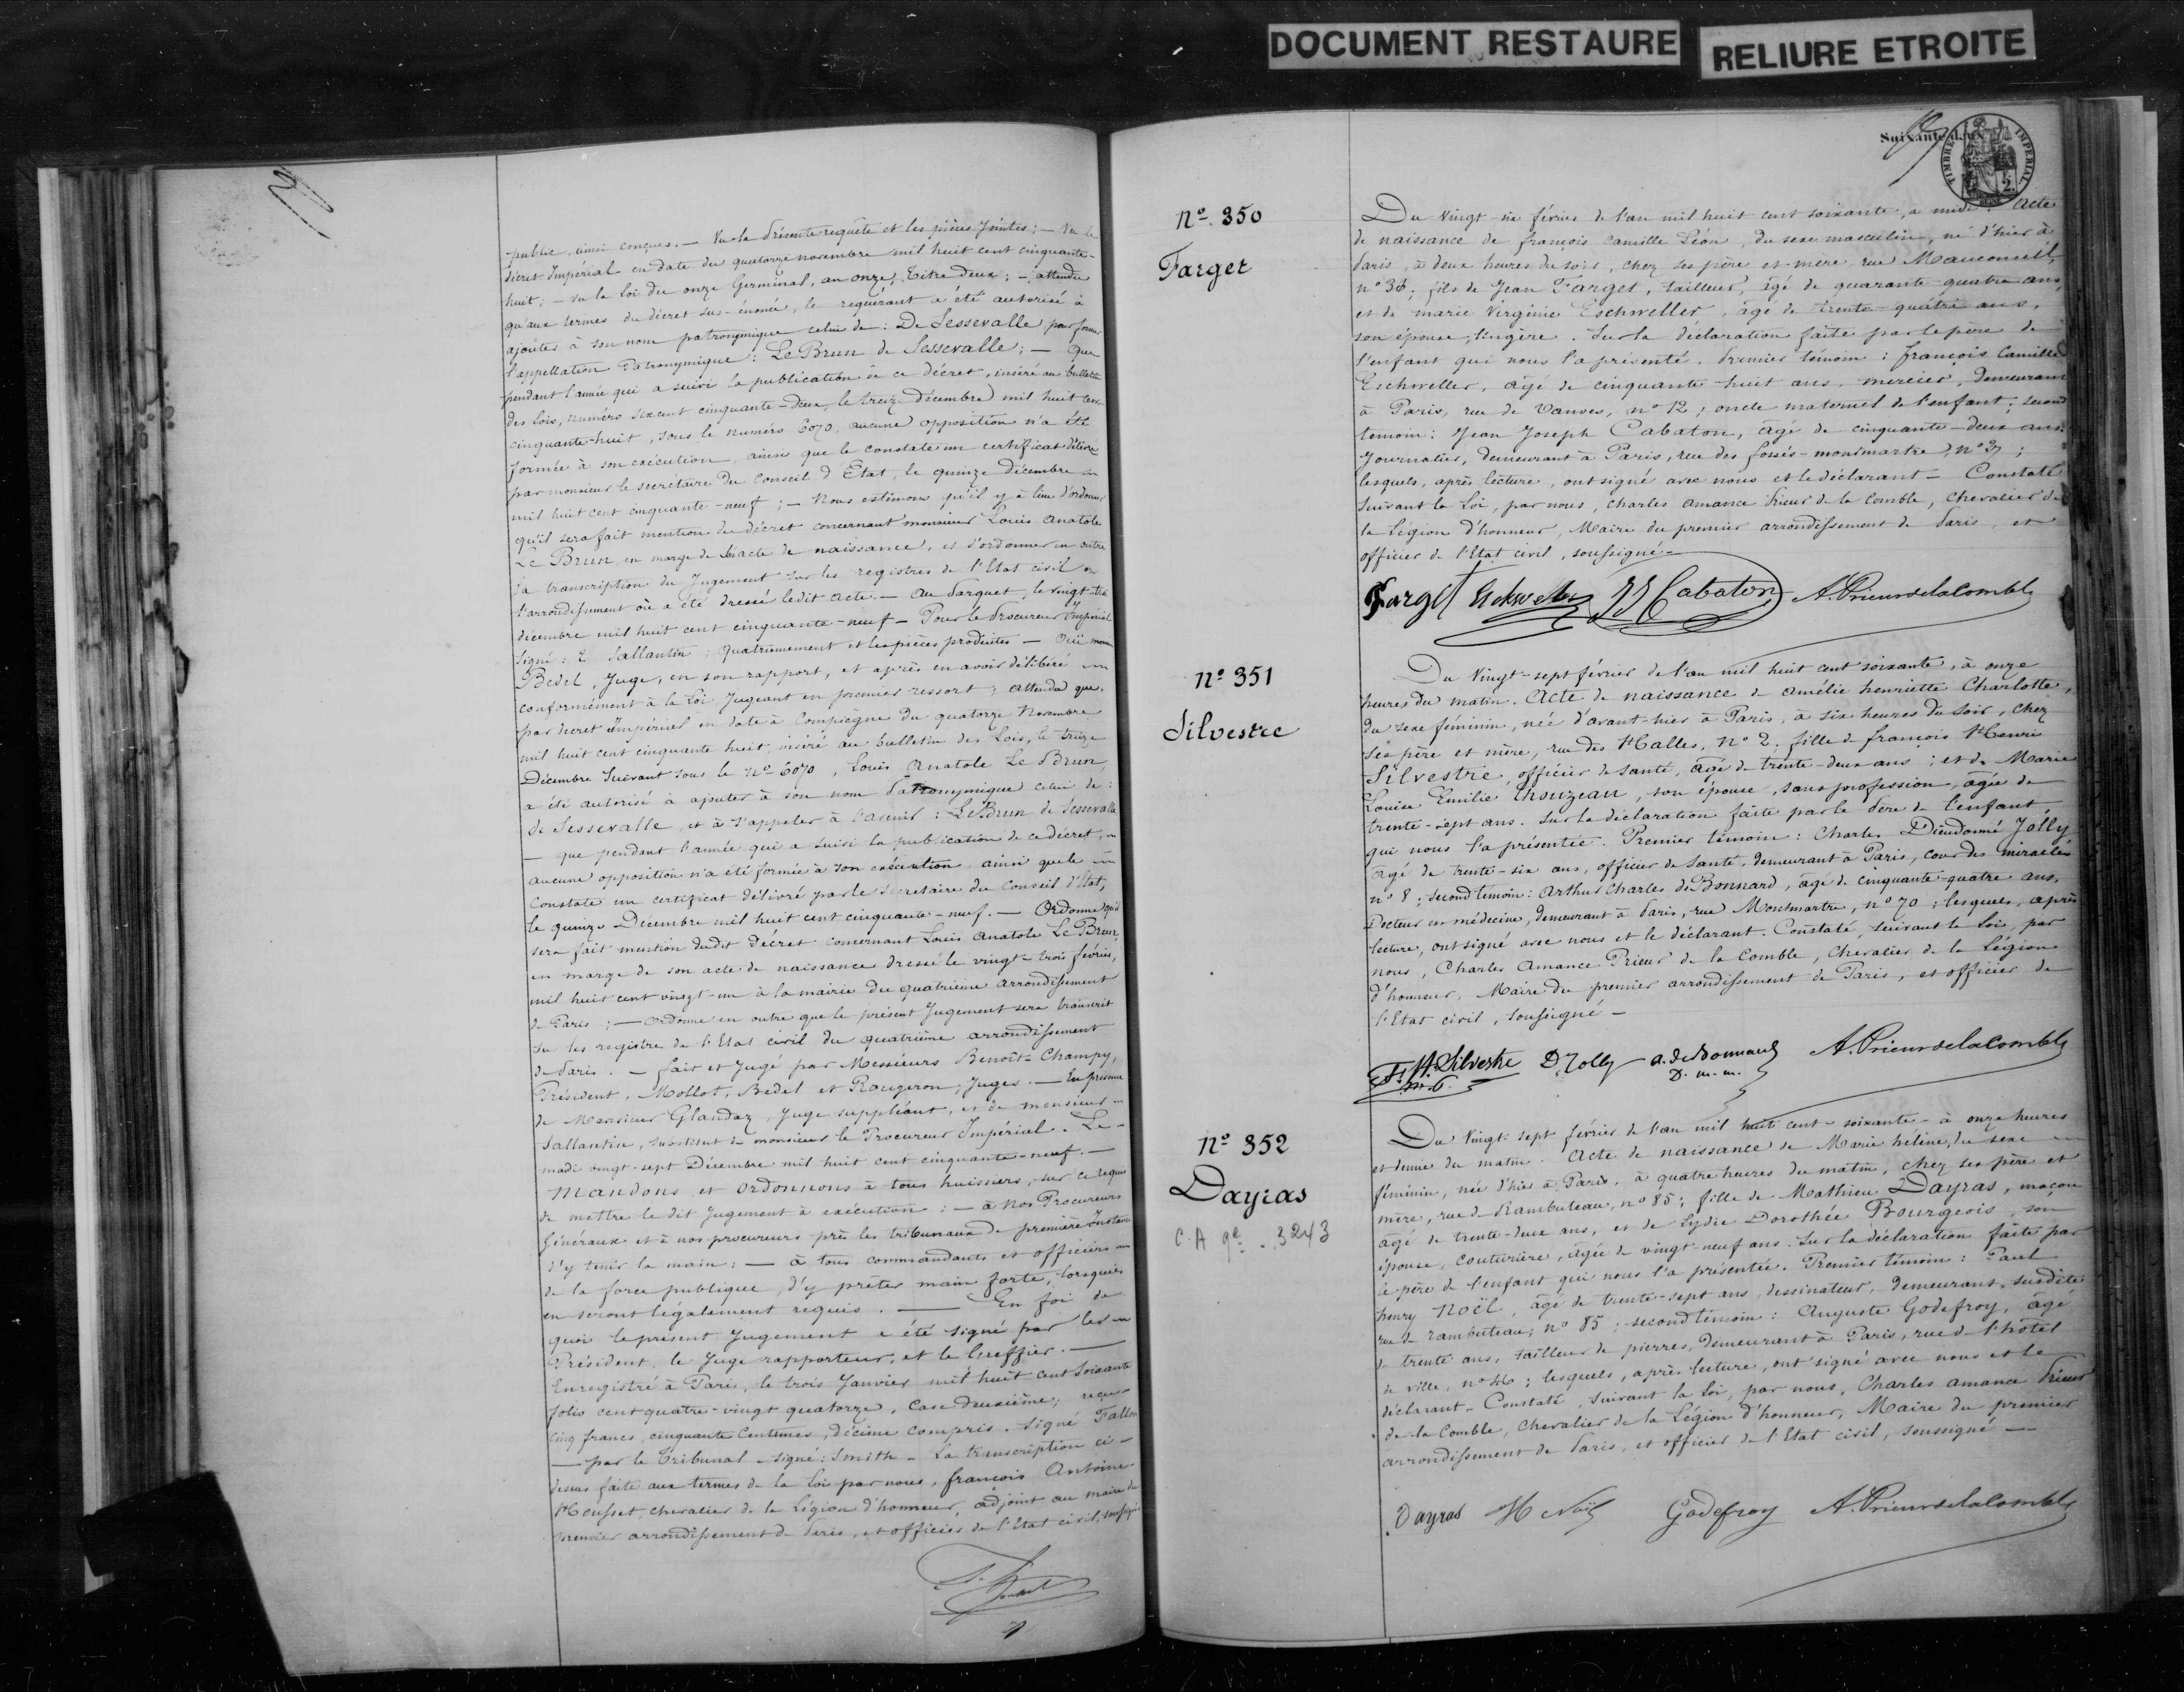 DOCUMENT RESTAURE
RELIURE ETROITE
public, ainsi conçues: — Vu la présente requête et les pièces jointes; — Vu le
décret Impérial en date du quatorze novembre mil huit cent cinquante-
huit; — vu la Loi du onze Germinal, an onze, titre deux; — attendu
qu'aux termes du décret sus-énoncé, le requérant a été autorisé à
ajouter à son nom patronymique celui de: De Sessevalle pour former
l'appellation Patronymique: Le Brun de Sessevalle; — Que
pendant l'année qui a suivi la publication de ce décret, inséré au bulletin
des Lois, numéro six cent cinquante-deux, le treize décembre mil huit cent
cinquante-huit, sous le numéro 6070, aucune opposition n'a été
formée à son exécution, ainsi que le constate un certificat délivré
par monsieur le secrétaire du Conseil d'Etat, le quinze décembre
mil huit cent cinquante-neuf; — Nous estimons qu'il y a lieu d'ordonner
qu'il sera fait mention du décret concernant monsieur Louis Anatole
Le Brun, en marge de l'acte de naissance, et d'ordonner en outre
la transcription du Jugement sur les registres de l'Etat civil
l'arrondissement où a été dressé ledit acte. — Au Parquet, le vingt-trois
décembre mil huit cent cinquante-neuf — Pour le Procureur Impérial
signé: Sallantin; quatrièmement et les pièces produites — Ouï
Bedel, Juge, en son rapport, et après en avoir délibéré
conformément à la Loi Jugeant en premier ressort; attendu que
par decret Impérial en date à Compiègne du quatorze Novembre
mil huit cent cinquante huit inséré au bulletin des Lois, le treize
Décembre suivant sous le No 6070, Louis Anatole Le Brun,
a été autorisé à ajouter à son nom Patronymique celui de:
de Sessevalle, et à s'appeler à l'avenir: Le Brun de Sessevalle
— que pendant l'année qui a suivi la publication de ce décret,
aucune opposition n'a été formée à son exécution ainsi que le
constate un certificat délivré par le secrétaire du Conseil d'Etat,
le quinze Décembre mil huit cent cinquante-neuf. — Ordonne qu'il
sera fait mention dudit décret concernant Louis Anatole Le Brun
en marge de son acte de naissance dressé le vingt-trois février,
mil huit cent vingt-un à la mairie du quatrième arrondissement
de Paris; — ordonne en outre que le présent Jugement sera transcrit
sur les registres de l'Etat civil du quatrième arrondissement
de Paris. — fait et Jugé par Messieurs Benoît-Champy,
Président, Mollot, Bedel et Rougeron, Juges. — En présence
de Monsieur Glandaz, Juge suppléant, et de monsieur
Sallantin, substitut de monsieur le Procureur Impérial. Le
mardi vingt-sept Décembre mil huit cent cinquante-neuf. —
Mandons et ordonnons à tous huissiers, sur ce requis
de mettre le dit Jugement à exécution: — à Nos Procureurs
Généraux et à nos procureurs près les tribunaux de première Instance
d'y tenir la main; — à tous commandants et officiers
de la force publique, d'y prêter main forte, lorsqu'ils
en seront légalement requis. — En foi de
quoi le présent Jugement a été signé par le
Président, le Juge rapporteur, et le Greffier. —
Enregistré à Paris, le trois Janvier mil huit cent soixante
folio cent quatre-vingt quatorze, case deuxième; reçu
cinq francs, cinquante centimes, décime compris. Signé Fallon
— par le Tribunal — signé: Smith — La transcription ci-
dessus faite aux termes de la Loi par nous, françois Antoine
Housset, chevalier de la Légion d'honneur, adjoint au maire du
premier arrondissement de Paris, et officier de l'Etat civil, soussigné
Suivante
TIMBRE IMPERIAL
2.
SEINE
No 350
Farget
Du vingt-six février de l'an mil huit cent soixante, à midi. Acte
de naissance de françois Camille Léon, du sexe masculin, né d'hier à
Paris, à deux heures du soir, chez ses père et mère, rue Mauconseil,
no 36; fils de Jean Farget, tailleur, âgé de quarante-quatre ans,
et de marie Virginie Eschweller, âgée de trente-quatre ans,
son épouse, lingère. Sur la déclaration faite par le père de
l'enfant qui nous l'a présenté. Premier témoin: françois Camille
Eschweller, âgé de cinquante-huit ans, mercier, demeurant
à Paris, rue de Vanves, no 12; oncle maternel de l'enfant; second
témoin: Jean Joseph Cabaton, âgé de cinquante-deux ans
Journalier, demeurant à Paris, rue des fossés-montmartre, no 27;
lesquels, après lecture, ont signé avec nous et le déclarant — Constaté
suivant la Loi, par nous, charles amance Prieur de la Comble, chevalier de
la Légion d'honneur, Maire du premier arrondissement de Paris, et
officier de l'Etat civil, soussigné —
Farget Eschweller JJ Cabaton A. Prieur de la Comble
No 351
Silvestre
Du Vingt-sept février de l'an mil huit cent soixante, à onze
heures du matin. Acte de naissance de Amélie henriette Charlotte,
du sexe féminin, née d'avant-hier à Paris, à six heures du soir, chez
ses père et mère, rue des Halles, No 2; fille de françois Henri
Silvestre, officier de santé, âgé de trente-deux ans; et de Marie
Louise Emilie Chouzeau, son épouse, sans profession, âgée de
trente-sept ans. Sur la déclaration faite par le Père de l'enfant,
qui nous l'a présentée. Premier témoin: Charles Dieudonné Jolly
âgé de trente-six ans, officier de Santé, demeurant à Paris, cour des miracles
no 8; second témoin: Arthur Charles de Bonnard, âgé de cinquante-quatre ans,
Docteur en médecine, demeurant à Paris, rue Montmartre, no 70; lesquels, après
lecture, ont signé avec nous et le déclarant. Constaté, suivant la Loi, par
nous, Charles Amance Prieur de la Comble, chevalier de la Légion
d'honneur, Maire du premier arrondissement de Paris, et officier de
l'Etat civil, soussigné —
F. H. Silvestre D. Jolly a. de Bonnard A. Prieur de la Comble
D. m. m.
No 352
Dayras
C. A 9e . 3243
Du Vingt-sept février de l'an mil huit cent-soixante-à onze heures
et demie du matin. Acte de naissance de Marie hélène, du sexe
féminin, née d'hier à Paris, à quatre heures du matin, chez ses père et
mère, rue de Rambuteau, no 85; fille de Mathieu Dayras, maçon
âgé de trente-deux ans, et de Lydie Dorothée Bourgeois, son
épouse, couturière, âgée de vingt-neuf ans. Sur la déclaration faite par
le père de l'enfant qui nous l'a présentée. Premier témoin: Paul
henry Noël, âgé de trente-sept ans, dessinateur, demeurant susdite
rue de rambuteau, no 85; second témoin: Auguste Godefroy, âgé
de trente ans, tailleur de pierres, demeurant à Paris, rue de l'hôtel
de ville, no 46; lesquels, après lecture, ont signé avec nous et le
déclarant — Constaté, suivant la Loi, par nous, Charles amance Prieur
de la Comble, chevalier de la Légion d'honneur, Maire du premier
arrondissement de Paris, et officier de l'Etat civil, soussigné —
Dayras H Noël Godefroy A. Prieur de la Comble